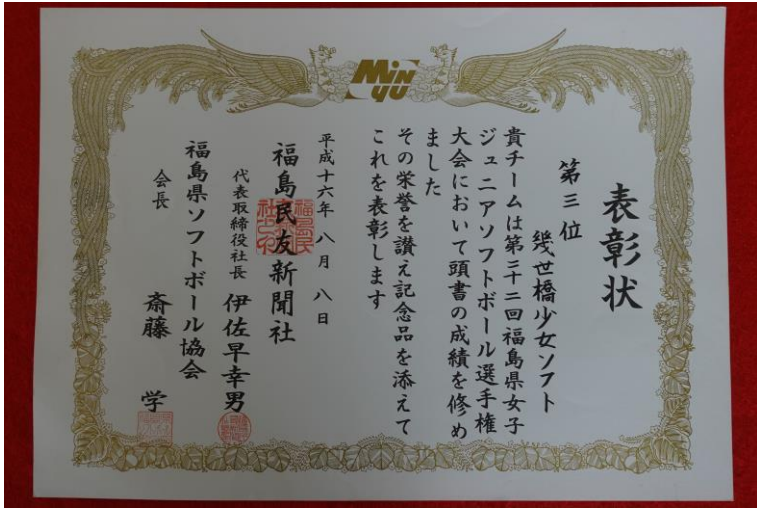 MiNYU
表彰状
第三位
幾世橋少女ソフト
貴チームは第二十二回福島県女子
ジュニアソフトボール選手権
大会において頭書の成績を修め
ました
その栄誉を讃え記念品を添えて
これを表彰します
平成十六年八月八日
福島民友新聞社
代表取締役社長 伊佐早幸男
福島県ソフトボール協会
会長 斎藤 学